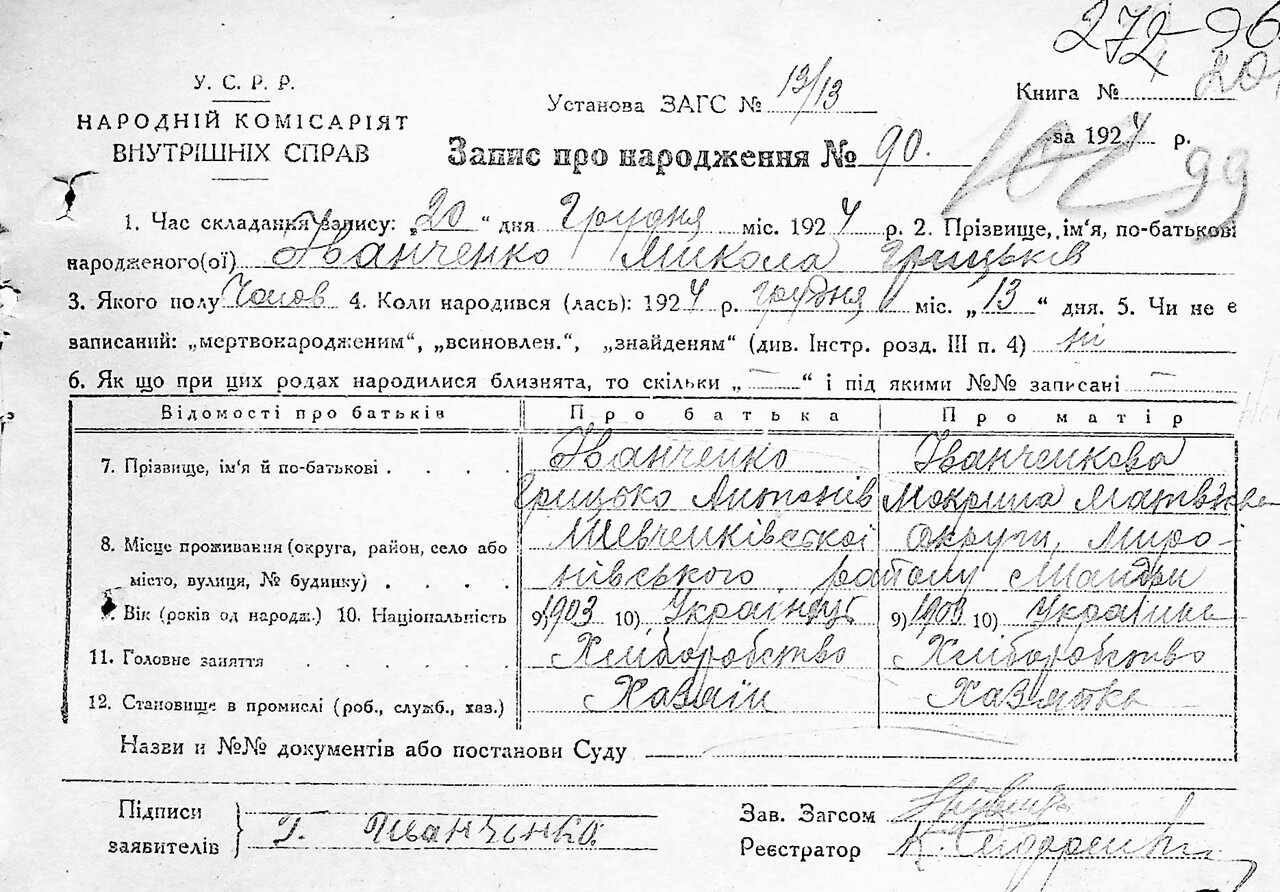 272-96
У. С. Р. Р.
НАРОДНІЙ КОМІСАРІЯТ
ВНУТРІШНІХ СПРАВ
Установа ЗАГС № 13/13
Книга №
за 1924 р.
Запис про народження № 90.
99
1. Час складання запису: „20“ дня Грудня міс. 1924 р. 2. Прізвище, ім'я, по-батькові
народженого(ої) Іванченко Микола Грицьків
3. Якого полу Чолов 4. Коли народився (лась): 1924 р. грудня міс. „13“ дня. 5. Чи не є
записаний: „мертвонародженим“, „всиновлен.“, „знайденям“ (див. Інстр. розд. III п. 4) ні
6. Як що при цих родах народилися близнята, то скільки „—“ і під якими №№ записані —
Відомості про батьків Про батька Про матір
7. Прізвище, ім'я й по-батькові . . . . Іванченко Іванченкова
Грицько Антонів Мокрина
8. Місце проживання (округа, район, село або Шевченківської округи, Миро-
місто, вулиця, № будинку) . . . . нівського району
9. Вік (років од народж.) 10. Національність 9) 1903 10) Українець 9) 1903 10) Українка
11. Головне заняття . . . . . Хліборобство Хліборобство
12. Становище в промислі (роб., служб., хаз.) Хазяїн Хазяйка
Назви и №№ документів або постанови Суду
Підписи
заявителів Г. Иванченко
Зав. Загсом
Реєстратор К.